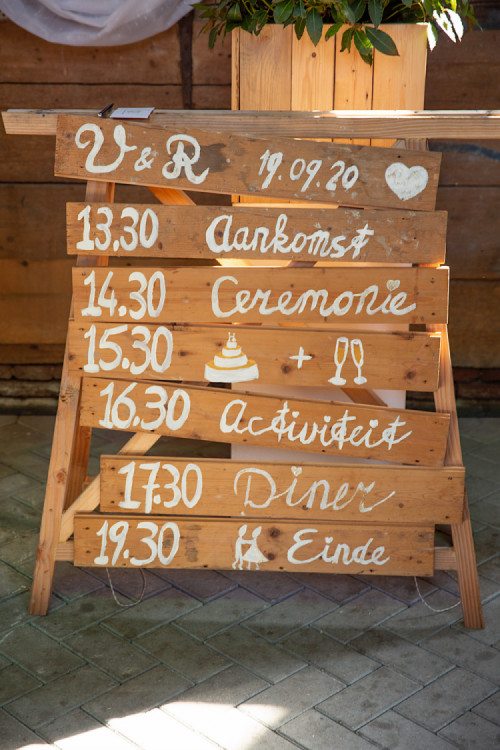 V & R 19.09.20
13.30 Aankomst
14.30 Ceremonie
15.30 +
16.30 Activiteit
17.30 Diner
19.30 Einde